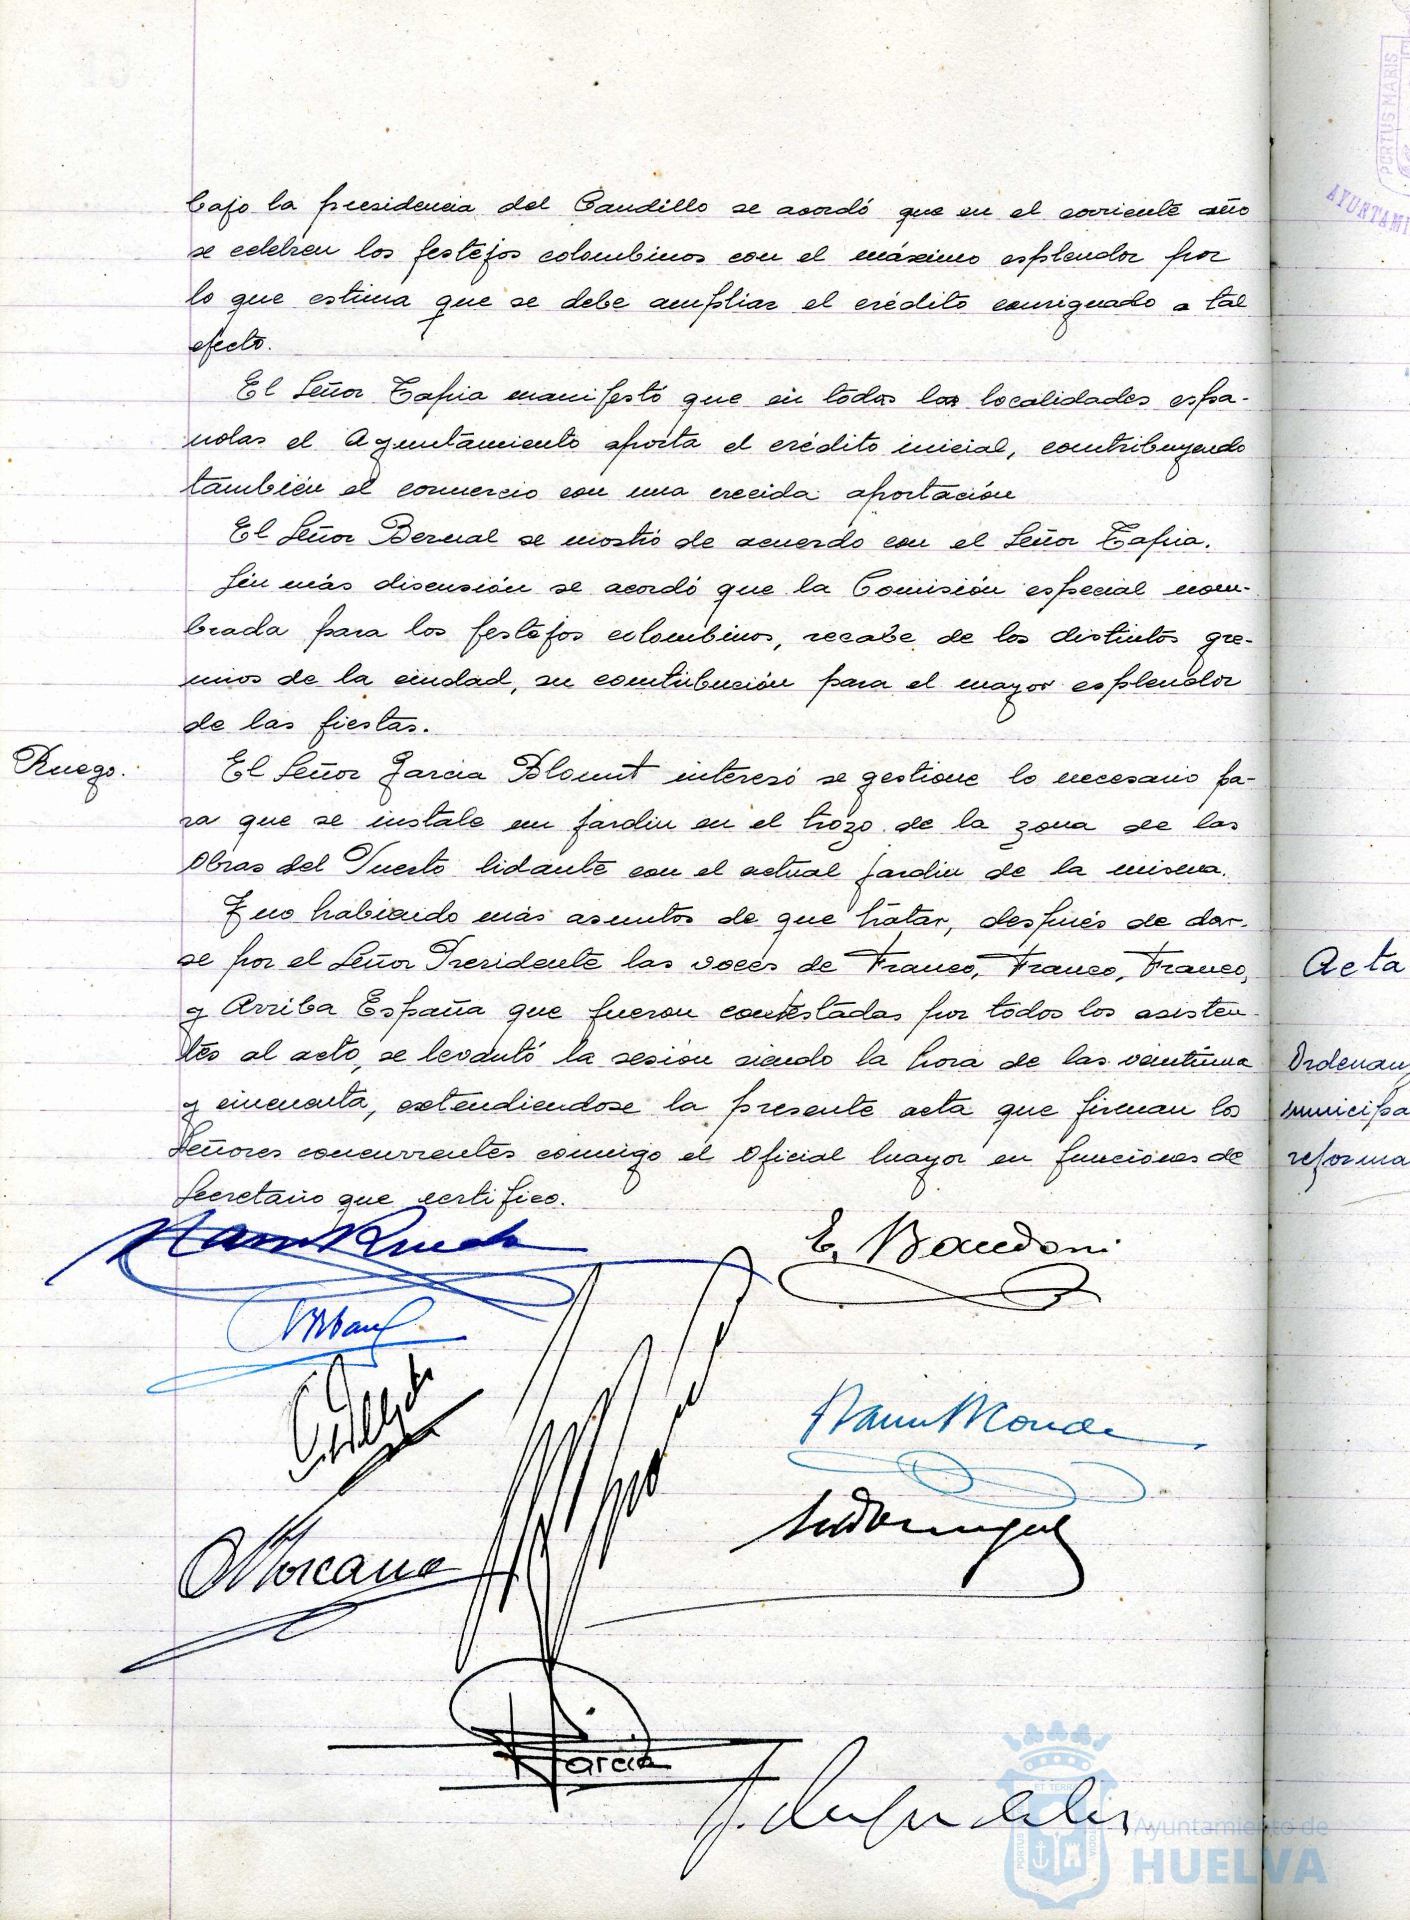 bajo la presidencia del Caudillo se acordó que en el corriente año
se celebren los festejos colombinos con el máximo esplendor por
lo que estima que se debe ampliar el crédito consignado a tal
efecto.
El Señor Tapia manifestó que en todas las localidades espa-
ñolas el Ayuntamiento aporta el crédito inicial, contribuyendo
también el comercio con una crecida aportación
El Señor Bernal se mostró de acuerdo con el Señor Tapia.
Sin más discusión se acordó que la Comisión especial nom-
brada para los festejos colombinos, recabe de los distintos gre-
mios de la ciudad, su contribución para el mayor esplendor
de las fiestas.
Ruego.
El Señor Garcia Blount interesó se gestione lo necesario pa-
ra que se instale un jardin en el trozo de la zona de las
Obras del Puerto lidante con el actual jardin de la misma.
Y no habiendo más asuntos de que tratar, después de dar-
se por el Señor Presidente las voces de Franco, Franco, Franco,
y Arriba España que fueron contestadas por todos los asisten-
tes al acto, se levantó la sesión siendo la hora de las veintiuna
y cincuenta, extendiendose la presente acta que firman los
Señores concurrentes conmigo el Oficial Mayor en funciones de
Secretario que certifico.
E.
Morcano
Garcia
Acta
Ordenan
municipa
reforma
PORTUS MARIS
AYUNTAMI
ET TERR
Ayuntamiento de
HUELVA